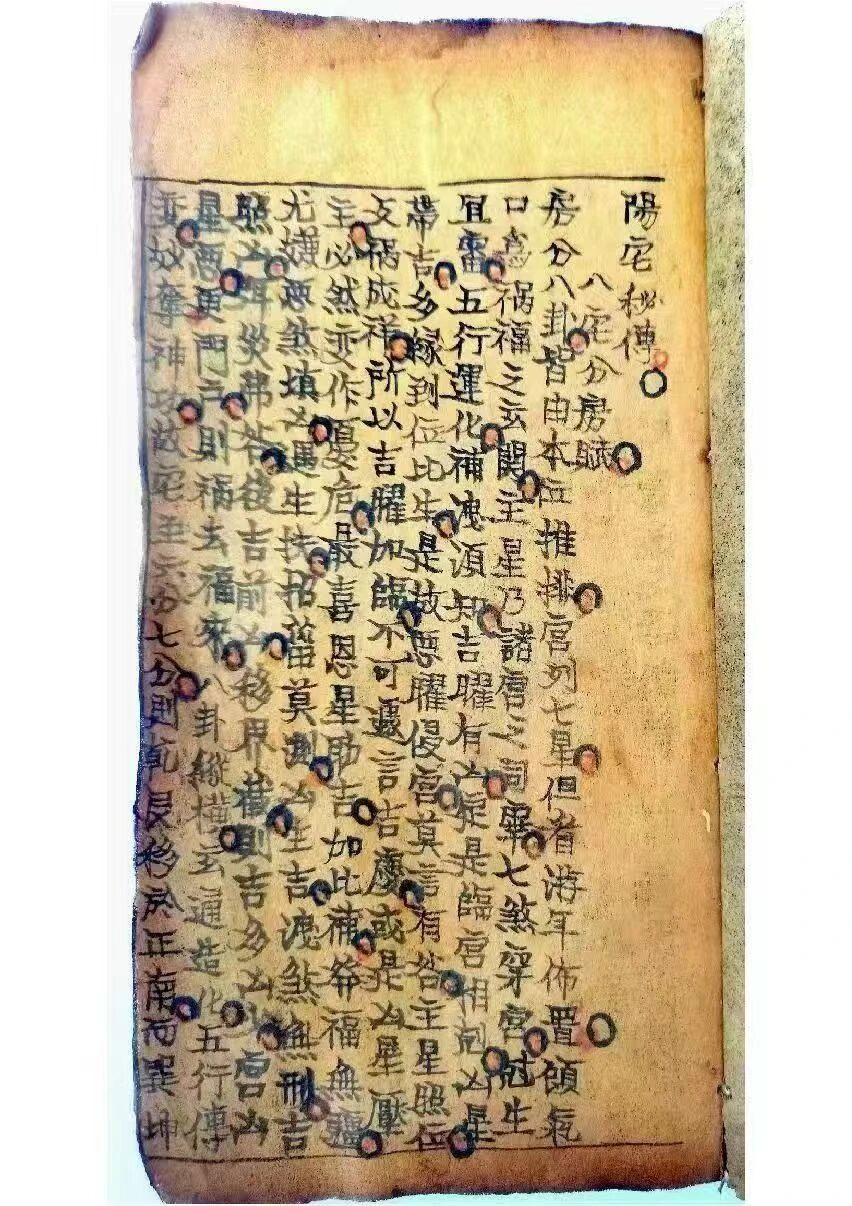 陽宅秘傳
八宅分房賦
房分八卦皆由本位推排宮列七星但看游年佈置須気
口為禍福之玄関主星乃諸宮之司畢七煞穿宮冠生
宜審五行運化補洩須知吉曜有凶定是臨宮相剋凶星
帶吉多緣到位比生是故惡曜侵宮莫言有咎主星照位
反禍成祥所以吉曜加臨不可遽言吉慶或是凶星壓
主必然变作憂危最喜恩星助吉加比蒲筭福無疆
尤嫌惡煞填凶遇生扶招菑莫測凶生吉洩煞無刑吉
照凶弭災弗咎後吉前凶移床換則吉多凶少宮凶
星惡更門户則禍去福來八卦縱橫玄通造化五行傳
变妙奪神功故宅至六分七分則乾艮移於正南而巽坤